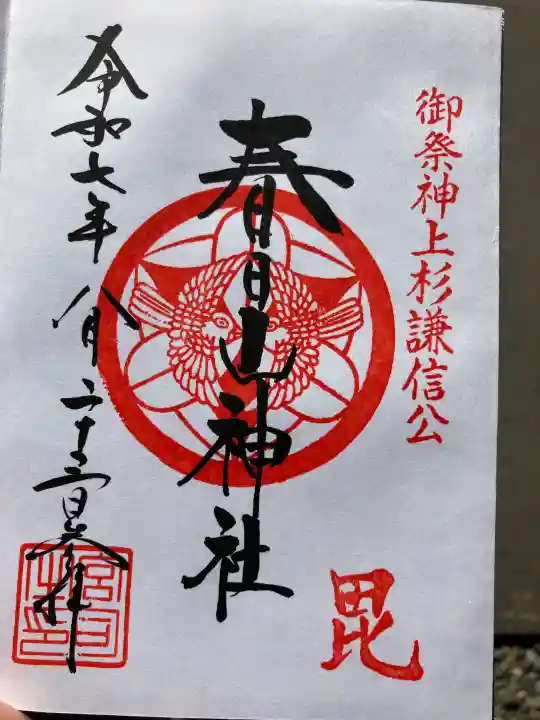 御祭神上杉謙信公
毘
春日山神社
令和七年八月二十三日参拝